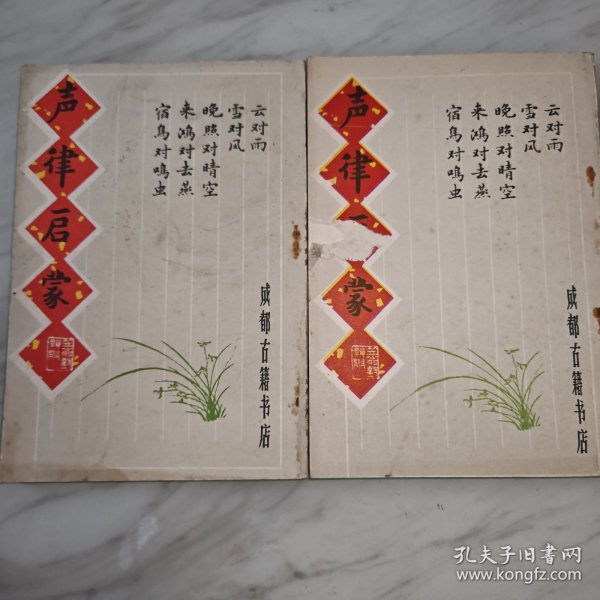 声律启蒙
云对雨
雪对风
晚照对晴空
来鸿对去燕
宿鸟对鸣虫
成都古籍书店
声律
蒙
云对雨
雪对风
晚照对晴空
来鸿对去燕
宿鸟对鸣虫
成都古籍书店
孔夫子旧书网
www.kongfz.com